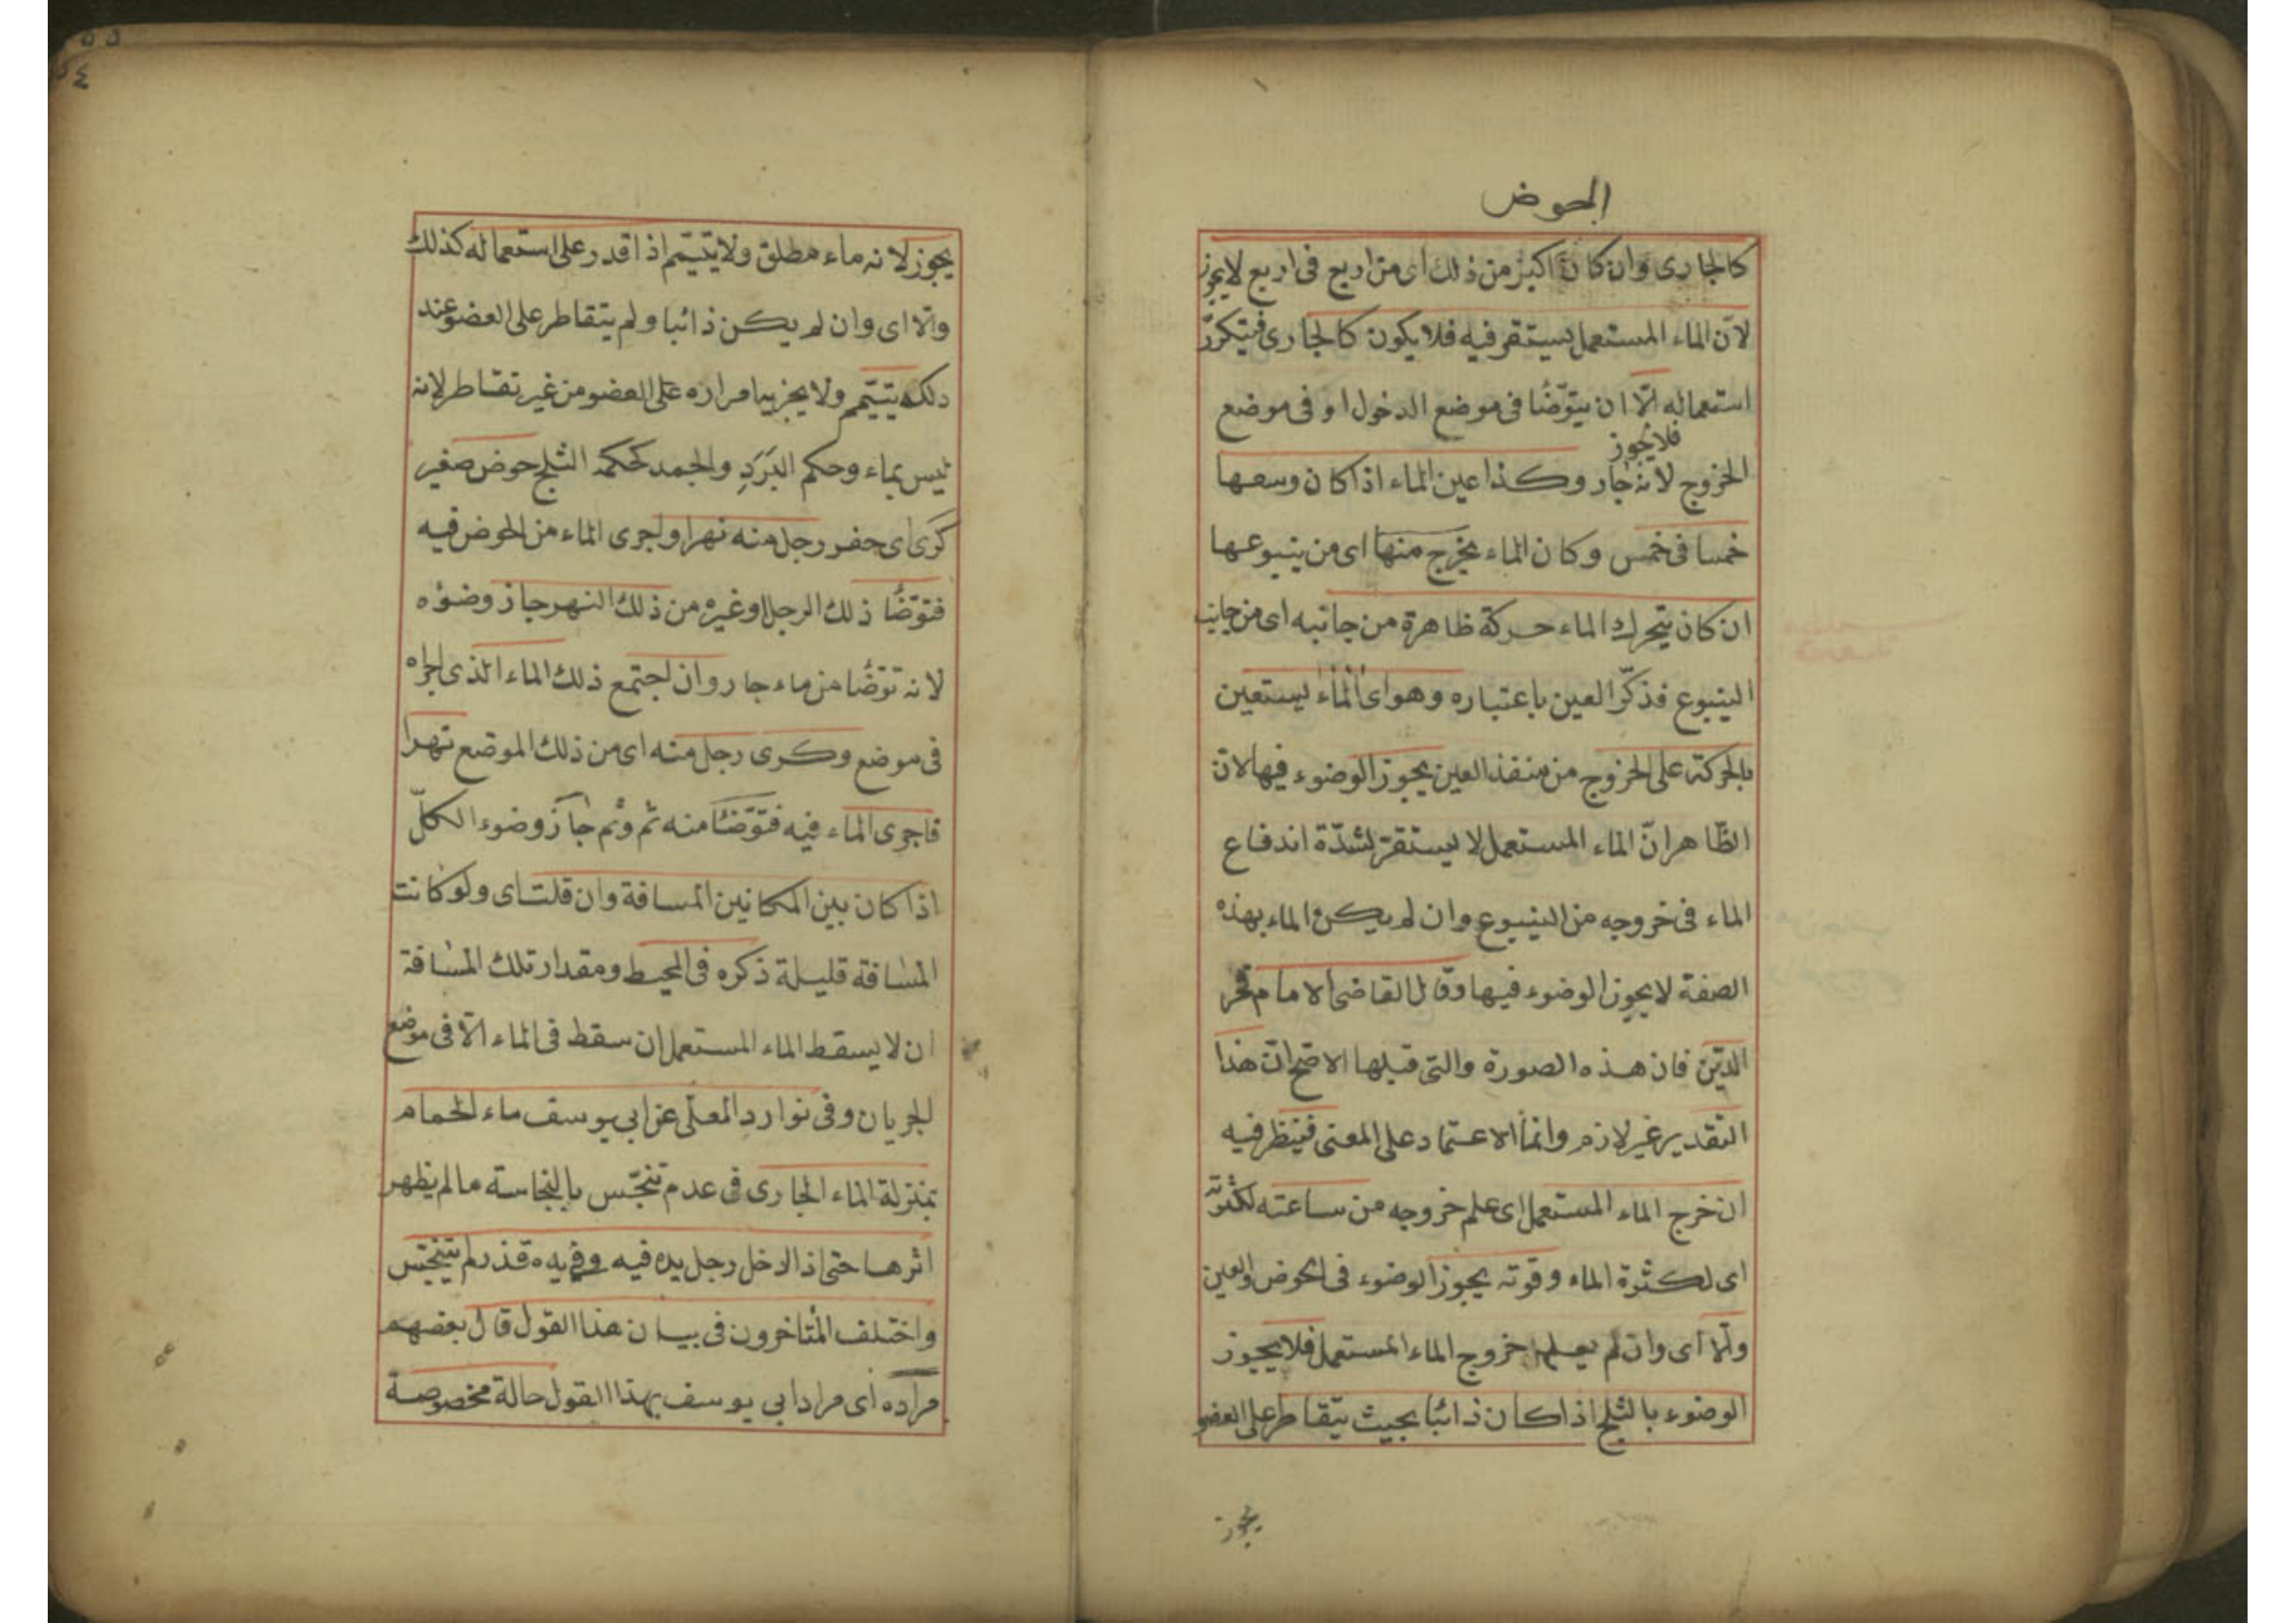 الحوض
كالجارى وان كان اكبر من ذلك اى من اربع فى اربع لايجوز
لانّ الماء المستعمل يستقر فيه فلا يكون كالجارى فيتكرّر
استعماله الّا ان يتوّضأ فى موضع الدخول او فى موضع
فلايجوز
الخروج لانه جار وكذا عين الماء اذا كان وسعها
خمسا فى خمس وكان الماء يخرج منها اى من ينبوعها
ان كان يتحرك الماء حركة ظاهرة من جانبه اى من جانب
الينبوع فذكّر العين باعتباره وهو اى الماء يستعين
بالحركة على الخروج من منفذ العين يجوز الوضوء فيها لان
الظّاهر انّ الماء المستعمل لا يستقرّ لشدّة اندفاع
الماء فى خروجه من الينبوع وان لم يكن الماء بهذه
الصفة لايجوز الوضوء فيها وقال القاضى الامام فخر
الدّين فان هذه الصورة والتى قبلها الاصح انّ هذا
التقدير غير لازم وانما الاعتماد على المعنى فينظر فيه
ان خرج الماء المستعمل اى علم خروجه من ساعته لكثرته
اى لكثرة الماء وقوته يجوز الوضوء فى الحوض والعين
والّا اى وان لم يعلم خروج الماء المستعمل فلا يجوز
الوضوء بالثلج اذا كان ذائبا بحيث يتقاطر على العضو
يجوز
يجوز لانه ماء مطلق ولا يتيمّم اذا قدر على استعماله كذلك
والّا اى وان لم يكن ذائبا ولم يتقاطر على العضو عند
دلكه يتيمّم ولا يجزيه امراره على العضو من غير تقاطر لانه
ليس بماء وحكم البَرَدِ والجمد كحكم الثلج حوض صغير
كَرَى اى حفر رجل منه نهرا واجرى الماء من الحوض فيه
فتوّضأ ذلك الرجل او غيره من ذلك النهر جاز وضؤه
لانه توضّأ من ماء جار وان اجتمع ذلك الماء الذى اجراه
فى موضع وكرى رجل منه اى من ذلك الموضع نهرا
فاجرى الماء فيه فتوّضأ منه ثم وثم جاز وضوء الكلّ
اذا كان بين المكانين المسافة وان قلت اى ولو كانت
المسافة قليلة ذكره فى المحيط ومقدار تلك المسافة
ان لا يسقط الماء المستعمل ان سقط فى الماء الّا فى موضع
الجريان وفى نوادر المعلّى عن ابى يوسف ماء الحمام
بمنزلة الماء الجارى فى عدم تنجّس بالنجاسة مالم يظهر
اثرها حتى اذا ادخل رجل يده فيه وفى يده قذر لم يتنجّس
واختلف المتأخرون فى بيان هذا القول قال بعضهم
مراده اى مراد ابى يوسف بهذا القول حالة مخصوصة